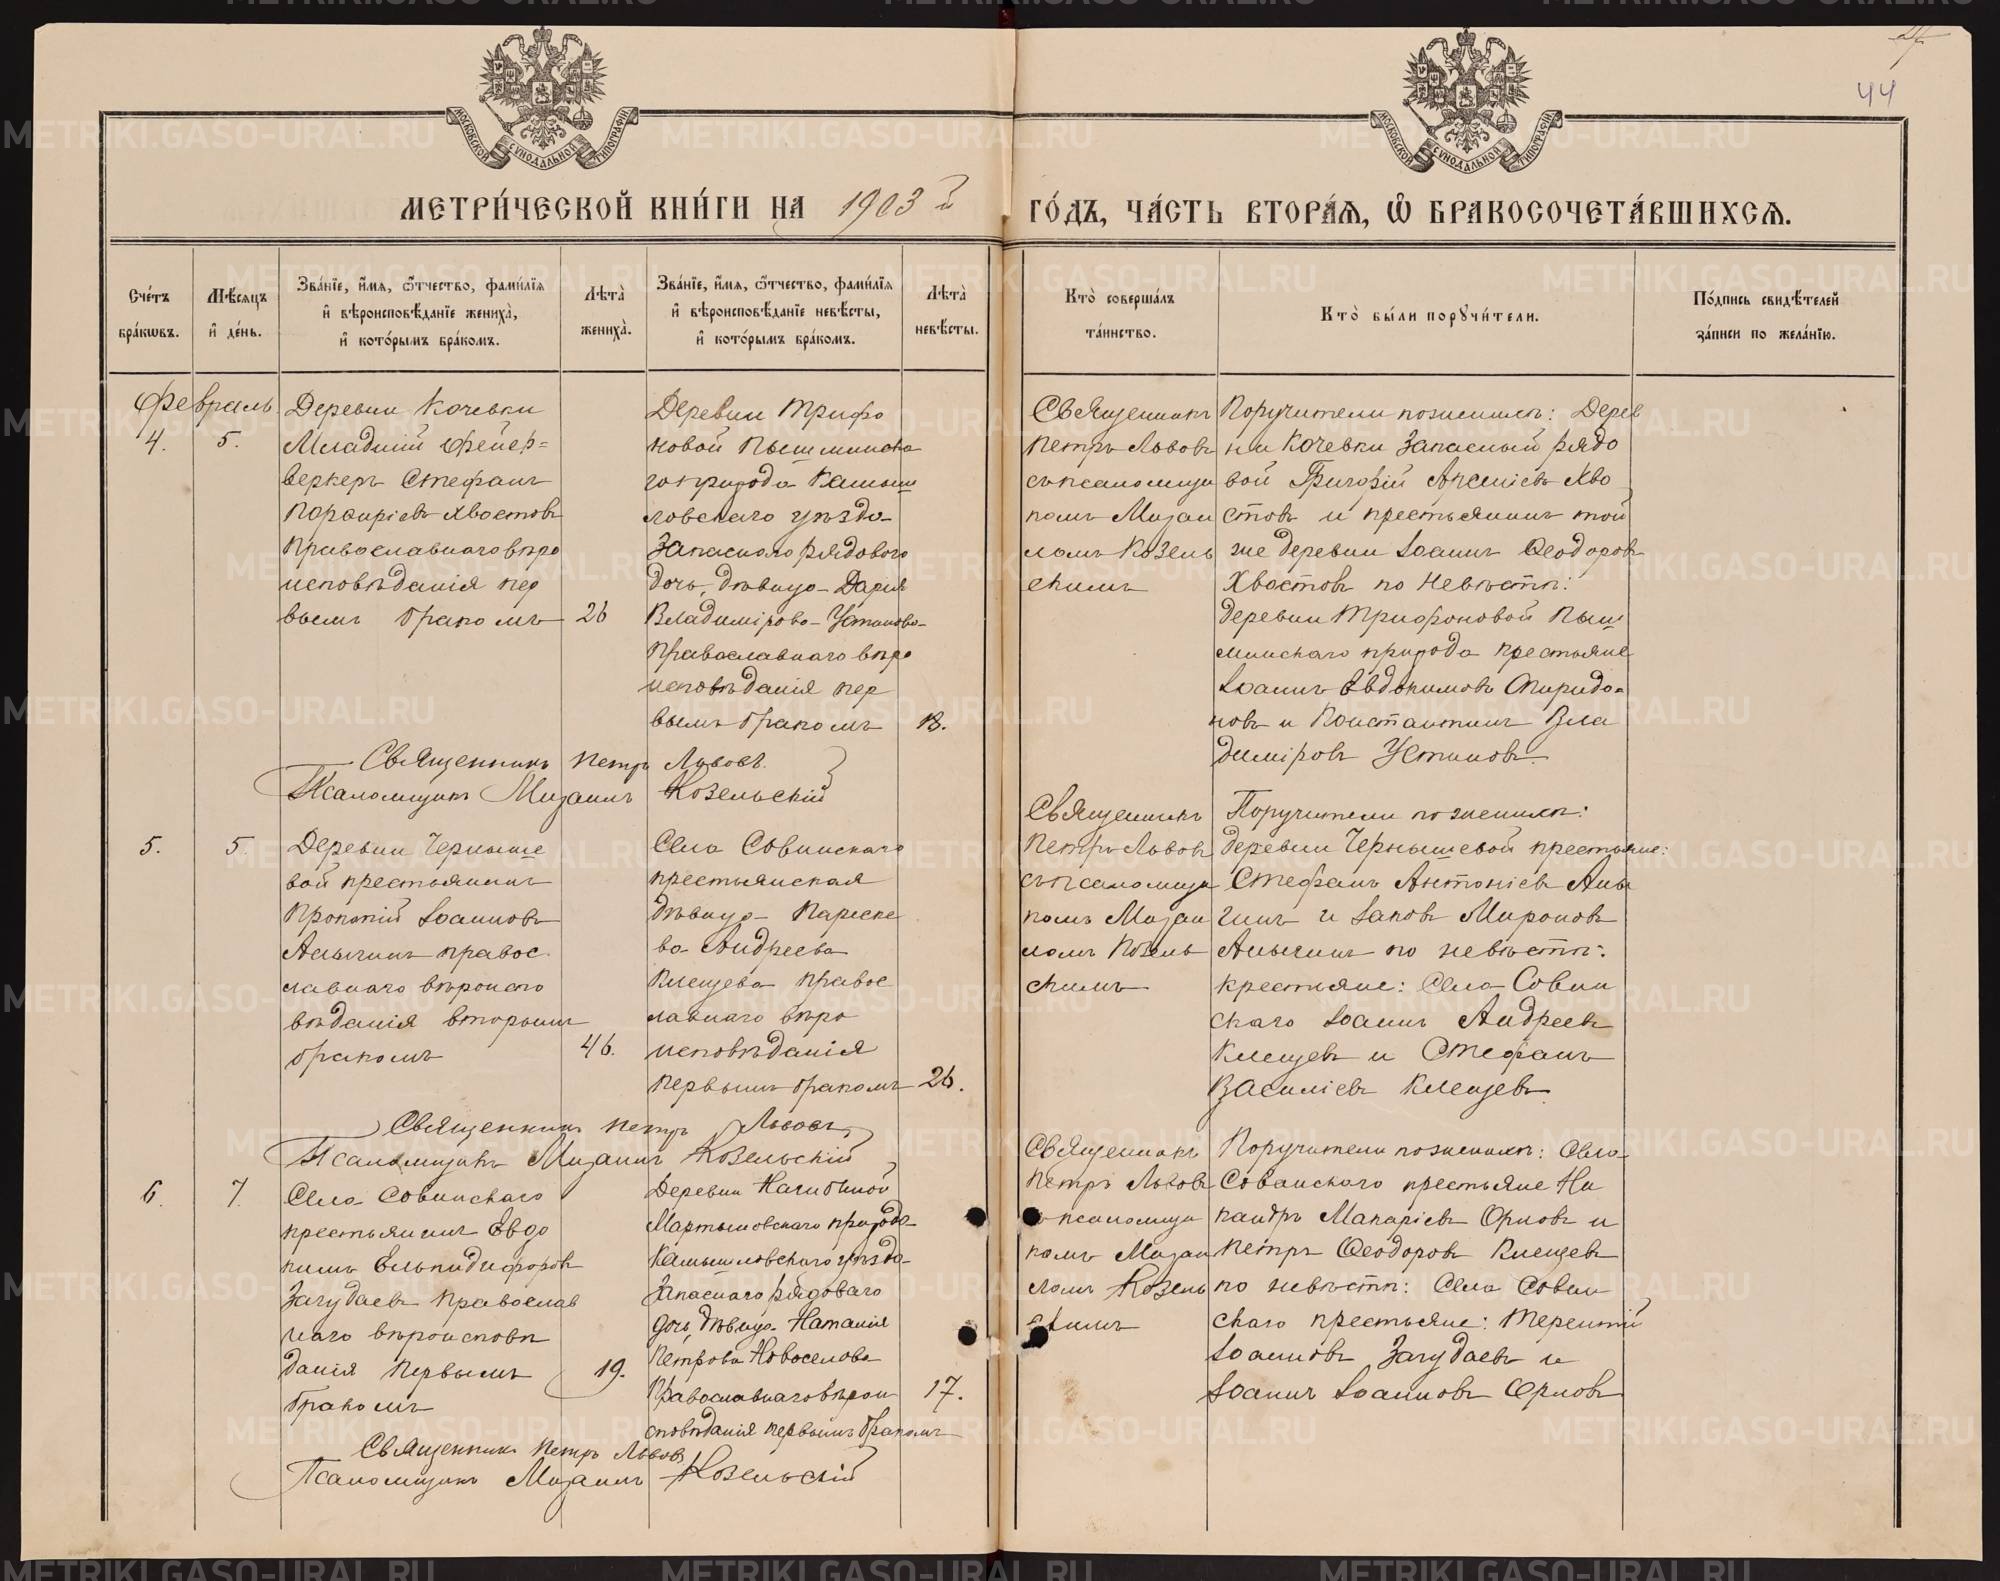 44
МОСКОВСКОЙ СѴНОДАЛЬНОЙ ТИПОГРАФІИ
МОСКОВСКОЙ СѴНОДАЛЬНОЙ ТИПОГРАФІИ
МЕТРИ́ЧЕСКОЙ КНИ́ГИ НА 1903 й ГО́ДЪ, ЧА́СТЬ ВТОРА́Ѧ, Ѽ БРАКОСОЧЕТА́ВШИХСѦ.
Сче́тъ
бра́кѡвъ.
Мѣ́сѧцъ
и҆ де́нь.
Зва́нїе, и҆́мѧ, ѻ҆́тчество, фами́лїѧ
и҆ вѣроисповѣ́данїе жениха̀,
и҆ кото́рымъ бра́комъ.
Лѣта̀
жениха̀.
Зва́нїе, и҆́мѧ, ѻ҆́тчество, фами́лїѧ
и҆ вѣроисповѣ́данїе невѣ́сты,
и҆ кото́рымъ бра́комъ.
Лѣта̀
невѣ́сты.
Кто̀ соверша́лъ
та́инство.
Кто̀ бы́ли порꙋчи́тели.
По́дпись свидѣ́телей
за́писи по жела́нїю.
Февраль
4.
5.
Деревни Кочевки
Младшій Фейер=
веркеръ Стефанъ
Порфиріевъ Хвостовъ
Православнаго веро
исповѣданія пер
вымъ бракомъ
26
Деревни Трифо
новой Пышминска
го прихода Камыш
ловскаго уѣзда
Запаснаго рядового
дочь, дѣвица Дарія
Владимірова Устинова
Православнаго вѣро
исповѣданія пер
вымъ бракомъ
18.
Священникъ
Петръ Львовъ
съ псаломщи
комъ Михаи
ломъ Козель
скимъ
Поручители по женихѣ: Дерев
ни Кочевки Запасный рядо
вой Григорій Арсеніевъ Хво
стовъ и крестьянинъ той
же деревни Іоаннъ Ѳеодоровъ
Хвостовъ по невѣстѣ:
деревни Трифоновой Пыш
минскаго прихода крестьяне
Іоаннъ Евдокимовъ Спиридо=
новъ и Константинъ Вла
диміровъ Устиновъ.
Священникъ Петръ Львовъ.
Псаломщикъ Михаилъ Козельскій
5.
5.
Деревни Черныше
вой крестьянинъ
Прокопій Іоанновъ
Аньгинъ правос
лавнаго вѣроиспо
вѣданія вторымъ
бракомъ
46.
Села Совинскаго
крестьянская
дѣвица Параске
ва Андреева
Клещева Правос
лавнаго вѣро
исповѣданія
первымъ бракомъ
26.
Священникъ
Петръ Львовъ
съ псаломщи
комъ Михаи
ломъ Козель
скимъ
Поручители по женихѣ:
деревни Чернышевой крестьяне:
Стефанъ Антоніевъ Ань
гинъ и Іаковъ Мироновъ
Аньгинъ по невѣстѣ:
крестьяне: Села Совин
скаго Іоаннъ Андреевъ
Клещевъ и Стефанъ
Василіевъ Клещевъ.
Священникъ Петръ Львовъ,
Псаломщикъ Михаилъ Козельскій
6.
7.
Села Совинскаго
крестьянинъ Евдо
кимъ Елпидифоровъ
Загудаевъ Православ
наго вѣроисповѣ
данія первымъ
бракомъ
19.
Деревни Нагибиной
Мартыновскаго прихода
Камышловскаго уѣзда
Запаснаго рядоваго
дочь, дѣвица Наталія
Петрова Новоселова
Православнаго вѣрои
сповѣданія первымъ бракомъ
17.
Священникъ
Петръ Львовъ
съ псаломщи
комъ Михаи
ломъ Козель
скимъ
Поручители по женихѣ: Села
Совинскаго крестьяне Ни
кандръ Макаріевъ Орловъ и
Петръ Ѳеодоровъ Клещевъ
по невѣстѣ: Села Совин
скаго крестьяне: Терентій
Іоанновъ Загудаевъ и
Іоаннъ Іоанновъ Орловъ
Священникъ Петръ Львовъ
Псаломщикъ Михаилъ Козельскій
METRIKI.GASO-URAL.RU